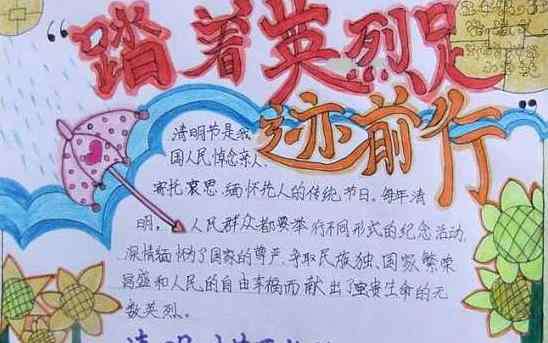 “踏着英烈足
迹前行”
清明节是我
国人民悼念亲人、
寄托哀思、缅怀先人的传统节日。每年清
明，人民群众都要举行不同形式的纪念活动，
深情缅怀为了国家的尊严，争取民族独、国家繁荣
昌盛和人民的自由幸福而献出了宝贵生命的无
数英烈。
清明